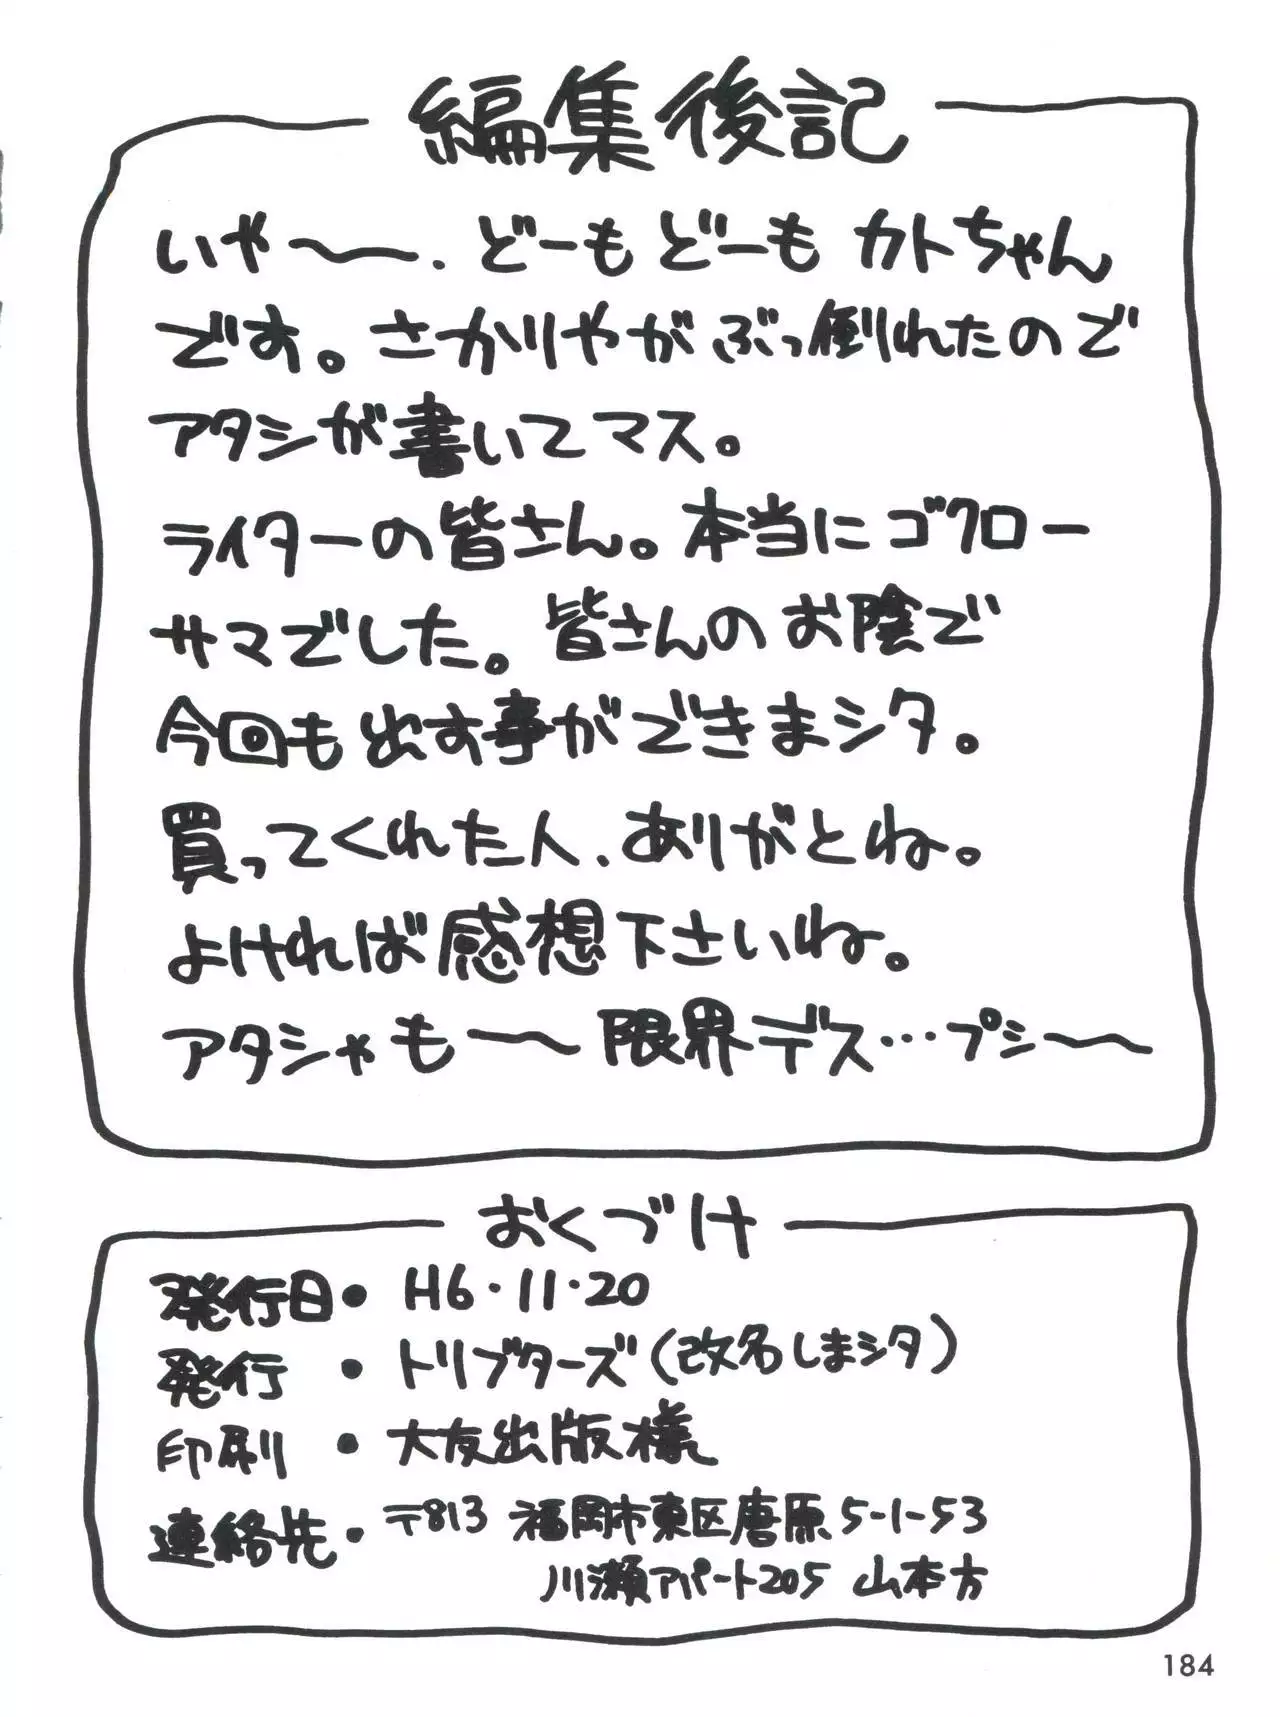 編集後記
いや〜、どーもどーもカトちゃん
です。さかりやがぶっ倒れたので
アタシが書いてマス。
ライターの皆さん。本当にゴクロー
サマでした。皆さんのお陰で
今回も出す事ができまシタ。
買ってくれた人、ありがとね。
よければ感想下さいね。
アタシゃも〜限界デス…プシ〜
おくづけ
発行日・H6・11・20
発行・トリブターズ(改名しまシタ)
印刷・大友出版様
連絡先・〒813 福岡市東区唐原5-1-53
川瀬アパート205 山本方
184